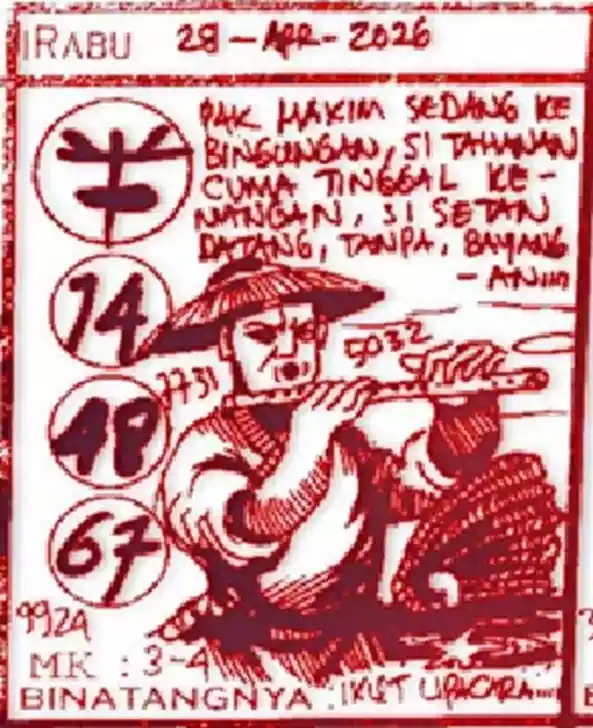 RABU 29 - APR - 2026
PAK HAKIM SEDANG KE
BINGUNGAN, SI TAHANAN
CUMA TINGGAL KE -
NANGAN, SI SETAN
DATANG, TANPA, BAYANG
14
5032
7731
48
67
9924
MK : 3-4
BINATANGNYA : IKUT UPACARA....